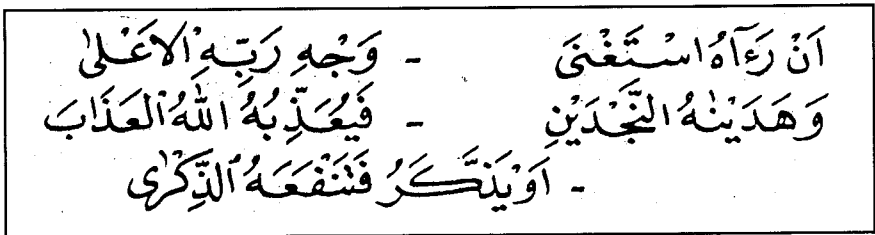 اَنْ رَءَاهُ اسْتَغْنَى - وَجْهِ رَبِّهِ الاَعْلٰى
وَهَدَيْنٰهُ النَّجْدَيْنِ - فَيُعَذِّبُهُ اللّٰهُ الْعَذَابَ
- اَوْ يَذَّكَّرُ فَتَنْفَعَهُ الذِّكْرٰى